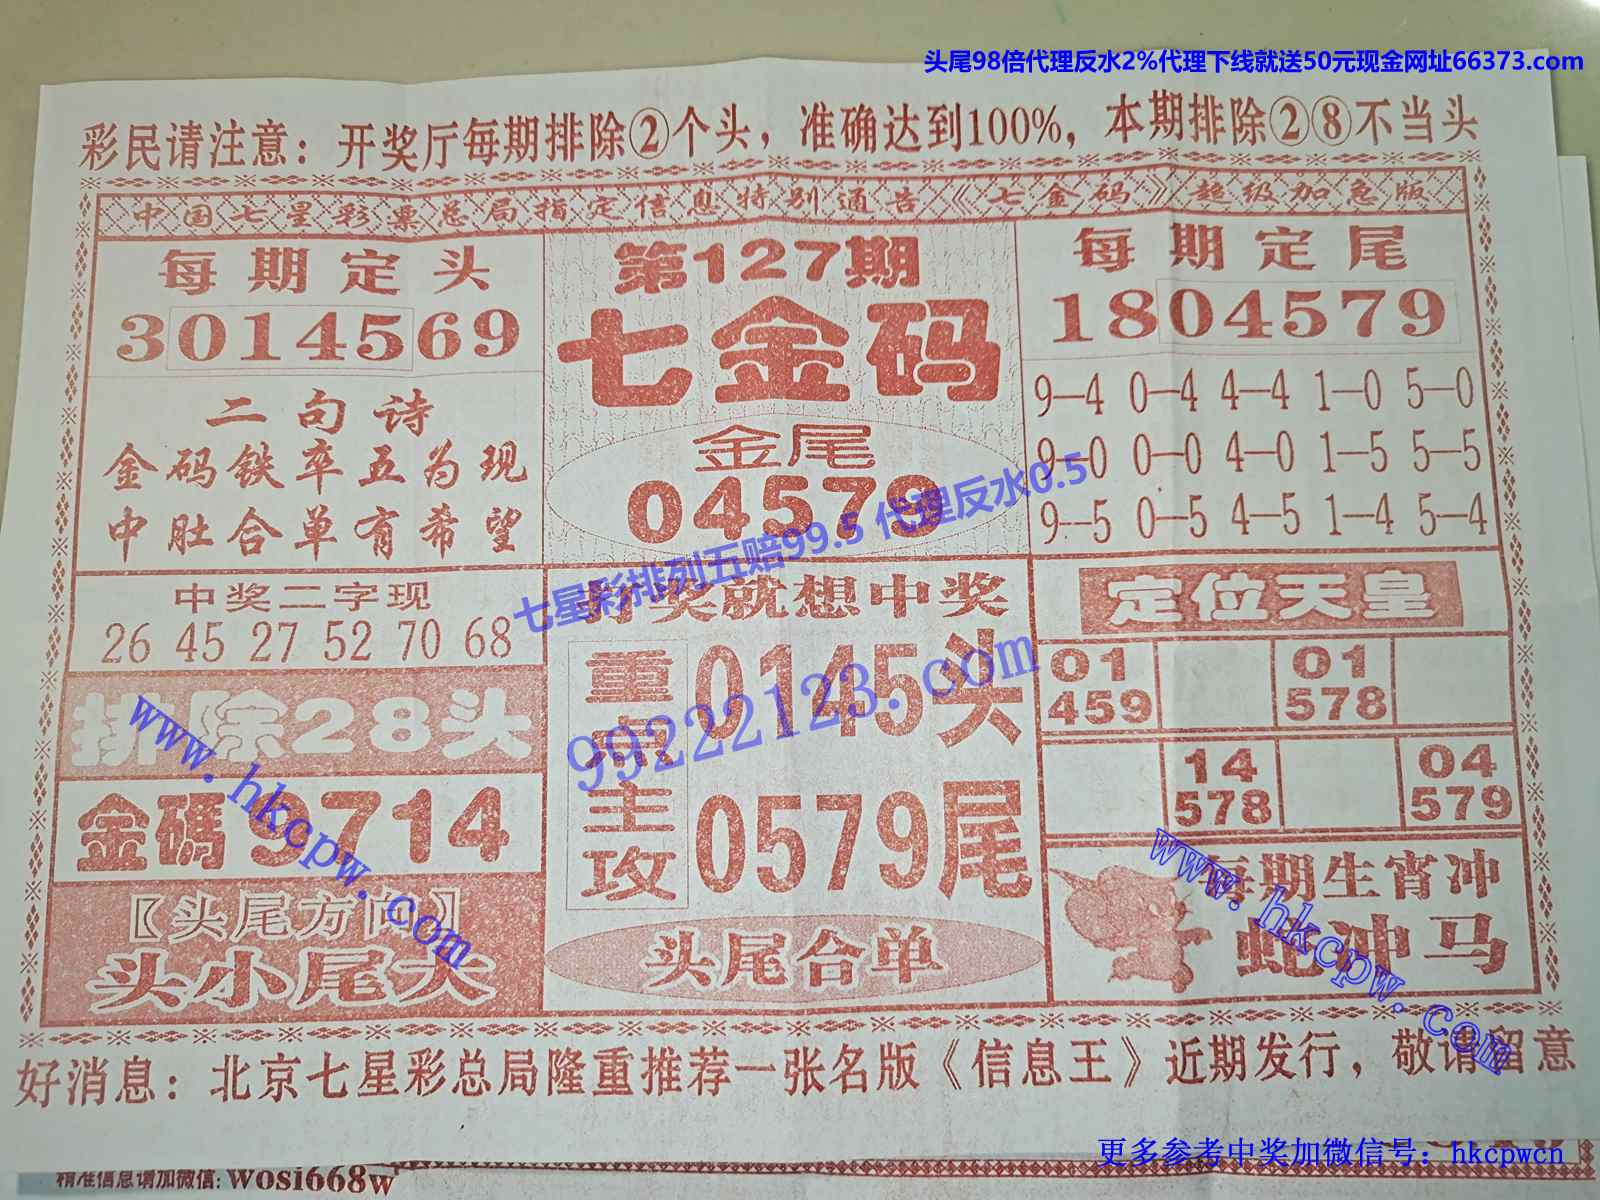 头尾98倍代理反水2%代理下线就送50元现金网址66373.com
彩民请注意：开奖厅每期排除②个头，准确达到100%，本期排除②⑧不当头
中国七星彩票总局指定信息特别通告《七金码》超级加急版
每期定头
3014569
二句诗
金码铁卒五为现
中肚合单有希望
第127期
七金码
金尾
04579
每期定尾
1804579
9—4 0—4 4—4 1—0 5—0
9—0 0—0 4—0 1—5 5—5
9—5 0—5 4—5 1—4 5—4
七星彩排列五赔99.5 代理反水0.5
中奖二字现
26 45 27 52 70 68
排除28头
金碼9714
【头尾方向】
头小尾大
奖就想中奖
重点主攻
0145头
0579尾
头尾合单
99222123.com
定位天皇
01
459
01
578
14
578
04
579
每期生肖冲
蛇冲马
www.hkcpw.com
www.hkcpw.com
好消息：北京七星彩总局隆重推荐一张名版《信息王》近期发行，敬请留意
更多参考中奖加微信号：hkcpwcn
精准信息请加微信:wosi668w